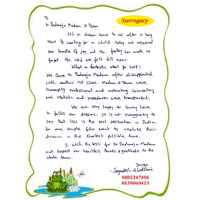 Surrogacy
To
Padmaja Madam & Team
It's a dream come to us after a long
time & waiting for a child. Today we received
our bundle of joy and the feeling has made us
forget the past we felt till now.
What a fantastic start for 2015!
We came to Padmaja Madam after disappointed
with another out clinic. Madam & Team were
thoroughly professional and motivating counselling
and statistics and procedures were transparent.
We are very happy for having been
to fulfill our dreams. It is not exaggerating to
say that this is the best destination in India
for any couple that want to realise their
dream in the shortest possible time.
I wish the best for Dr Padmaja Madam
and express our heartfelt thanks & gratitude to the
whole team.
9885347496
8639860413